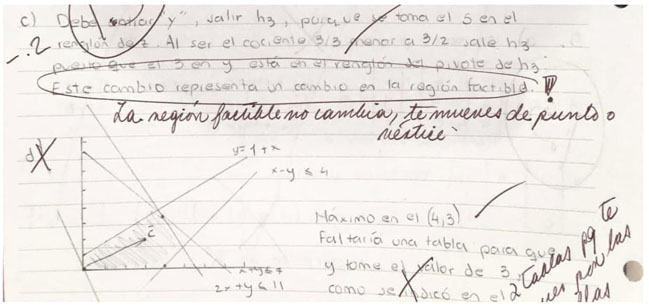 c) Debe entrar "y", salir h3, porque se toma el 5 en el
-.2
renglón de z. Al ser el cociente 3/3 menor a 3/2 sale h3
puesto que el 3 en y está en el renglón del pivote de h3.
Este cambio representa un cambio en la región factible.
La región factible no cambia, te mueves de punto o
vértice.
d)
y=1+x
x-y≤4
c
x+y≤7
2x+y≤11
Máximo en el (4,3)
Faltaría una tabla para que
y tome el valor de 3
como se indicó en el
2 tablas pq te
por las